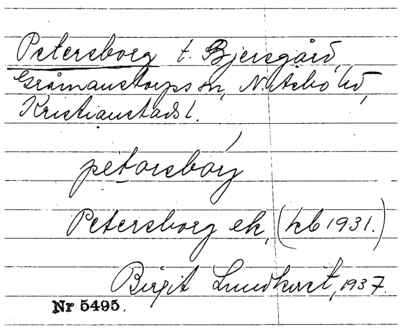 Petersborg t. Bjersgård,
Gråmanstorps sn, N. Åsbo hd,
Kristianstads l.
petorsbóry
Petersborg ek, (kb 1931.)
Birgit Lundkvist, 1937.
Nr 5495.